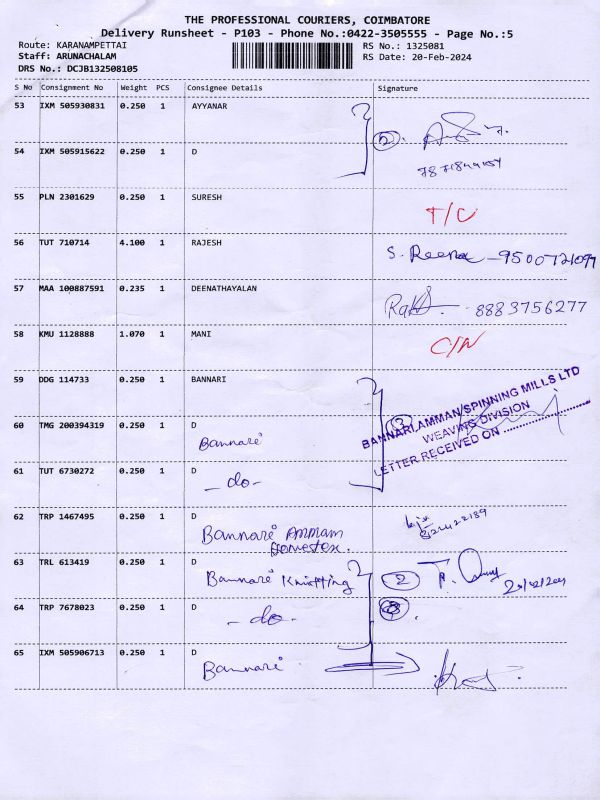 THE PROFESSIONAL COURIERS, COIMBATORE
Delivery Runsheet - P103 - Phone No.:0422-3505555 - Page No.:5
Route: KARANAMPETTAI
RS No.: 1325081
Staff: ARUNACHALAM
RS Date: 20-Feb-2024
DRS No.: DCJB132508105
S No Consignment No Weight PCS Consignee Details Signature
53 IXM 505930831 0.250 1 AYYANAR
2
54 IXM 505915622 0.250 1 D
55 PLN 2301629 0.250 1 SURESH
T/C
56 TUT 710714 4.100 1 RAJESH
S. Reena - 9500721097
57 MAA 100887591 0.235 1 DEENATHAYALAN
8883756277
58 KMU 1128888 1.070 1 MANI
C/N
59 DDG 114733 0.250 1 BANNARI
BANNARI AMMAN SPINNING MILLS LTD
WEAVING DIVISION
LETTER RECEIVED ON
60 TMG 200394319 0.250 1 D
Bannari
3
61 TUT 6730272 0.250 1 D
- do -
62 TRP 1467495 0.250 1 D
Bannari Ammam
63 TRL 613419 0.250 1 D
Bannari Knitting
2
64 TRP 7678023 0.250 1 D
- do -
65 IXM 505906713 0.250 1 D
Bannari